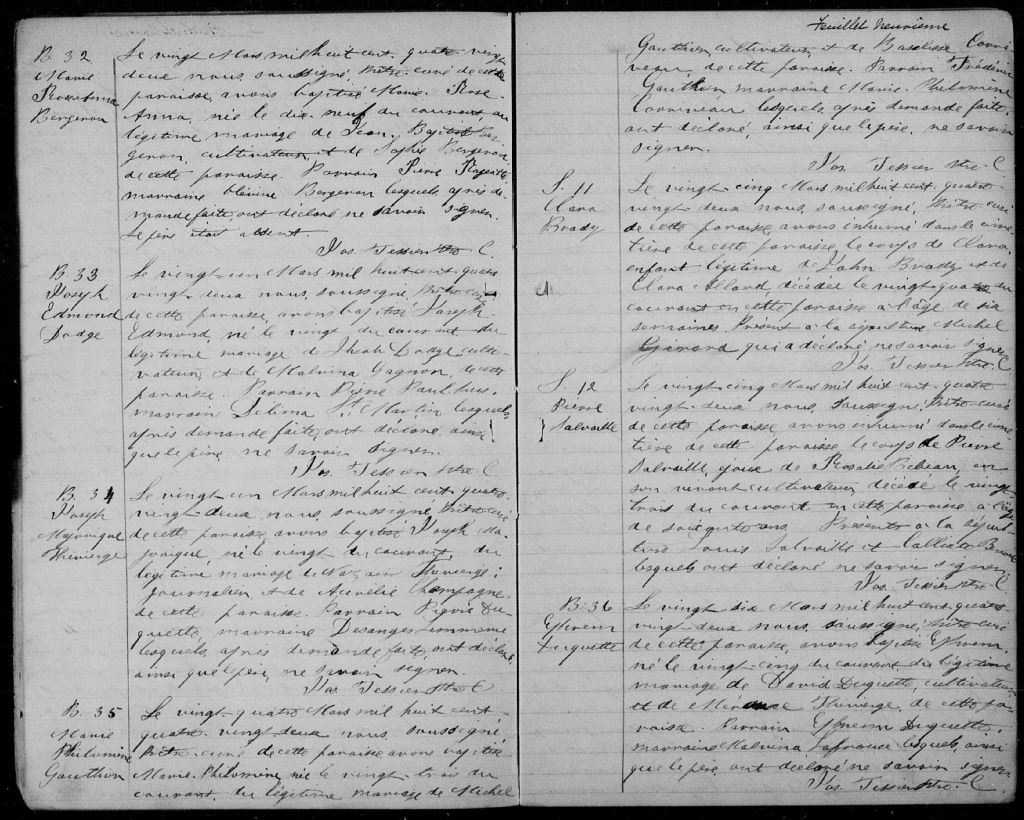 B. 32
Marie
Rose Anna
Bergeron
Le vingt Mars mil huit cent quatre vingt
deux nous, soussigné, Prêtre curé de cette
paroisse, avons baptisé Marie Rose
Anna, née le dix neuf du courant, du
légitime mariage de Jean Baptiste Ber-
geron, cultivateur, et de Sophie Bergeron
de cette paroisse. Parrain Pierre
marraine Bergeron lesquels, après de-
mande faite, ont déclaré ne savoir signer.
Le père était absent.
Jos. Tessier Ptre. C
B. 33
Joseph
Edmond
Dodge
Le vingt un Mars mil huit cent quatre
vingt deux nous, soussigné, Prêtre curé
de cette paroisse, avons baptisé Joseph
Edmond, né le vingt du courant du
légitime mariage de Jacob Dodge, culti-
vateur, et de Malvina Gagnon, de cette
paroisse. Parrain Pierre Paul hus,
marraine Zelima St. Martin lesquels,
après demande faite, ont déclaré, ainsi
que le père, ne savoir signer.
Jos. Tessier Ptre. C
B. 34
Joseph
Majorique
Thivierge
Le vingt un Mars mil huit cent quatre
vingt deux nous, soussigné Prêtre curé
de cette paroisse avons baptisé Joseph Ma-
jorique, né le vingt du courant, du
légitime mariage de Nazaire Thivierge,
journalier, et de Aurelie Champagne,
de cette paroisse. Parrain Pierre Du-
quette, marraine Desanges
lesquels, après demande faite, ont déclaré,
ainsi que le père, ne savoir signer.
Jos. Tessier Ptre C
B. 35
Marie
Philomène
Gauthier
Le vingt quatre Mars mil huit cent
quatre vingt deux nous, soussigné,
Prêtre curé de cette paroisse, avons baptisé
Marie Philomène, née le vingt trois du
courant, du légitime mariage de Michel
Feuillet neuvième
Gauthier, cultivateur, et de Baselisse Corri-
veau de cette paroisse. Parrain Frédéric
Gauthier, marraine Marie Philomène
Corriveau lesquels, après demande faite,
ont déclaré, ainsi que le père, ne savoir
signer.
Jos. Tessier Ptre. C
S. 11
Clara
Brady
Le vingt cinq Mars mil huit cent quatre
vingt deux nous, soussigné, Prêtre curé
de cette paroisse, avons inhumé dans le cime-
tière de cette paroisse, le corps de Clara
enfant légitime de John Brady et de
Clara Allard décédée le vingt quatre du
courant en cette paroisse à l'âge de six
semaines. Présent à la sépulture Michel
qui a déclaré ne savoir signer.
Jos. Tessier Ptre. C
S. 12
Pierre
Salvaille
Le vingt cinq Mars mil huit cent quatre
vingt deux nous, soussigné, Prêtre curé
de cette paroisse avons inhumé dans le cime-
tière de cette paroisse le corps de Pierre
Salvaille, époux de Rosalie en
son vivant cultivateur, décédé le vingt
trois du courant en cette paroisse à l'âge
de ans. Présents à la sépul-
ture Louis Salvaille et
lesquels ont déclaré ne savoir signer.
Jos. Tessier Ptre. C
B. 36
Ephrem
Duquette
Le vingt six Mars mil huit cent quatre
vingt deux nous, soussigné, Prêtre curé
de cette paroisse, avons baptisé Ephrem,
né le vingt cinq du courant du légitime
mariage de David Duquette, cultivateur
et de Thivierge, de cette pa-
roisse. Parrain Ephrem Duquette,
marraine Malvina Lafrance lesquels, ainsi
que le père, ont déclaré ne savoir signer.
Jos. Tessier Ptre. C